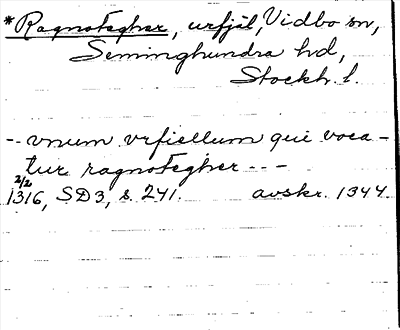 *Ragnotegher, urfjäl, Vidbo sn,
Seminghundra hd,
Stockh. l.
-- vnum vrfiellum qui voca-
tur ragnotegher ---
2/2
1316, SD3, s. 241. avskr. 1344.